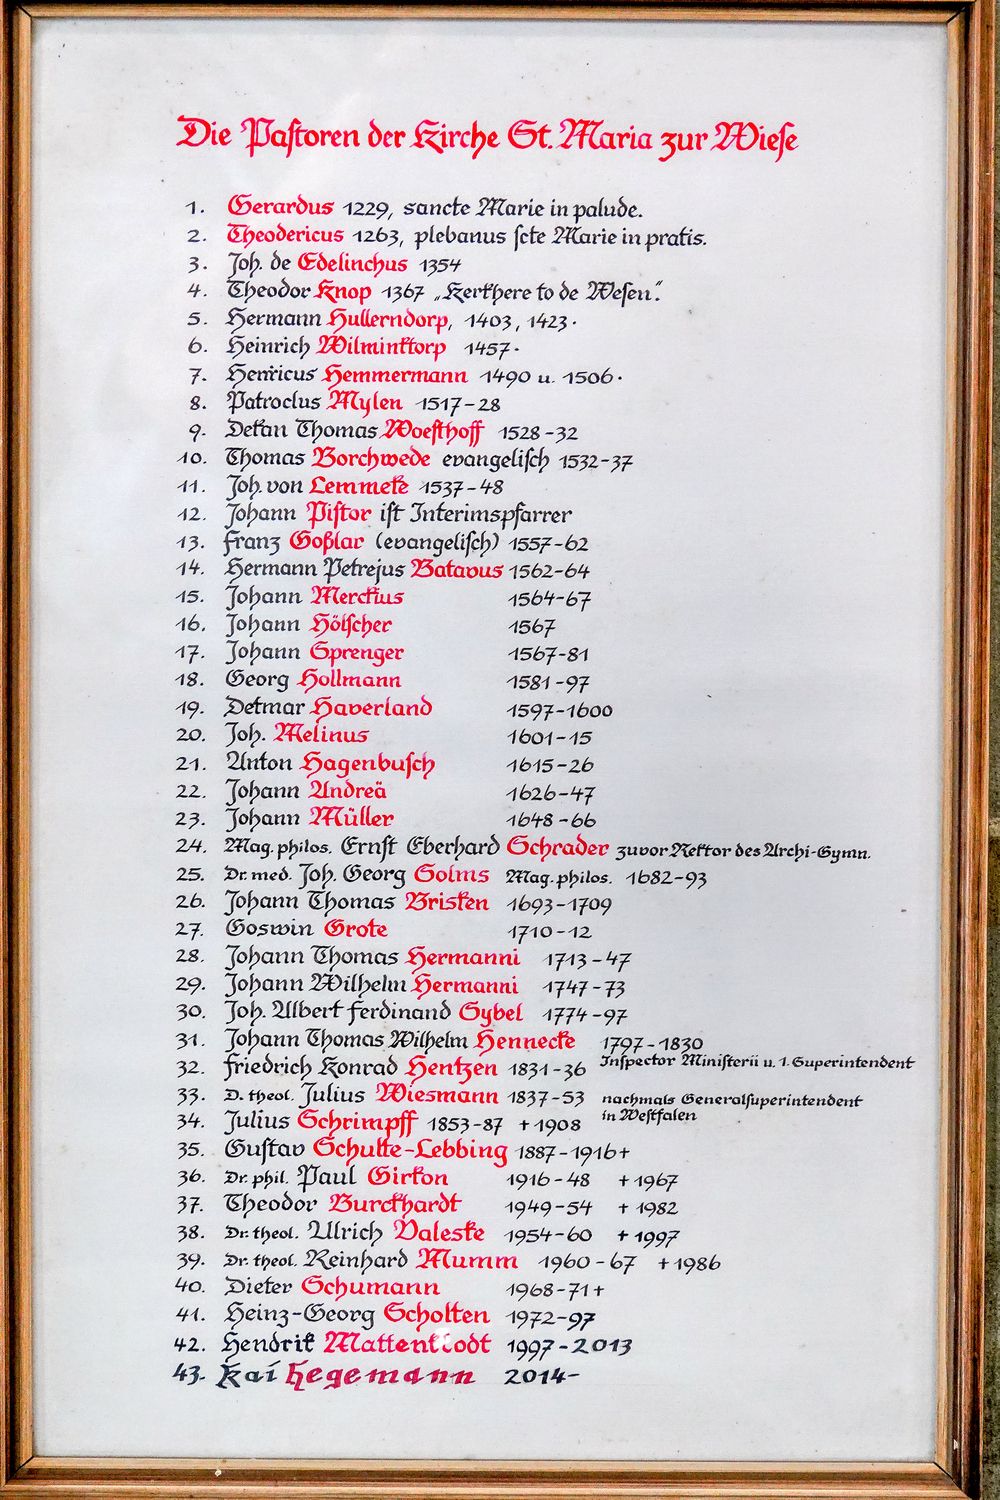 Die Paſtoren der Kirche St. Maria zur Wieſe
1. Gerardus 1229, sancte Marie in palude.
2. Theodericus 1263, plebanus ſcte Marie in pratis.
3. Joh. de Edelinchus 1354
4. Theodor Knop 1367 „Kerkhere to de Weſen".
5. Hermann Hullerndorp, 1403, 1423.
6. Heinrich Wilminktorp 1457.
7. Henricus Hemmermann 1490 u. 1506.
8. Patroclus Mylen 1517-28
9. Dekan Thomas Woeſthoff 1528-32
10. Thomas Borchwede evangeliſch 1532-37
11. Joh. von Lemmeke 1537-48
12. Johann Piſtor iſt Interimspfarrer
13. Franz Goßlar (evangeliſch) 1557-62
14. Hermann Petrejus Batavus 1562-64
15. Johann Merckius 1564-67
16. Johann Hölſcher 1567
17. Johann Sprenger 1567-81
18. Georg Hollmann 1581-97
19. Detmar Haverland 1597-1600
20. Joh. Melinus 1601-15
21. Anton Hagenbuſch 1615-26
22. Johann Andreä 1626-47
23. Johann Müller 1648-66
24. Mag. philos. Ernſt Eberhard Schrader zuvor Rektor des Archi-Gymn.
25. Dr. med. Joh. Georg Solms Mag. philos. 1682-93
26. Johann Thomas Brisken 1693-1709
27. Goswin Grote 1710-12
28. Johann Thomas Hermanni 1713-47
29. Johann Wilhelm Hermanni 1747-73
30. Joh. Albert Ferdinand Sybel 1774-97
31. Johann Thomas Wilhelm Hennecke 1797-1830
32. Friedrich Konrad Hentzen 1831-36 Inſpector Miniſterii u. 1. Superintendent
33. D. theol. Julius Wiesmann 1837-53 nachmals Generalſuperintendent
in Weſtfalen
34. Julius Schrimpff 1853-87 +1908
35. Guſtav Schulte-Lebbing 1887-1916+
36. Dr. phil. Paul Girkon 1916-48 +1967
37. Theodor Burckhardt 1949-54 +1982
38. Dr. theol. Ulrich Valeske 1954-60 +1997
39. Dr. theol. Reinhard Mumm 1960-67 +1986
40. Dieter Schumann 1968-71+
41. Heinz-Georg Scholten 1972-97
42. Hendrik Mattenklodt 1997-2013
43. Kai Hegemann 2014-